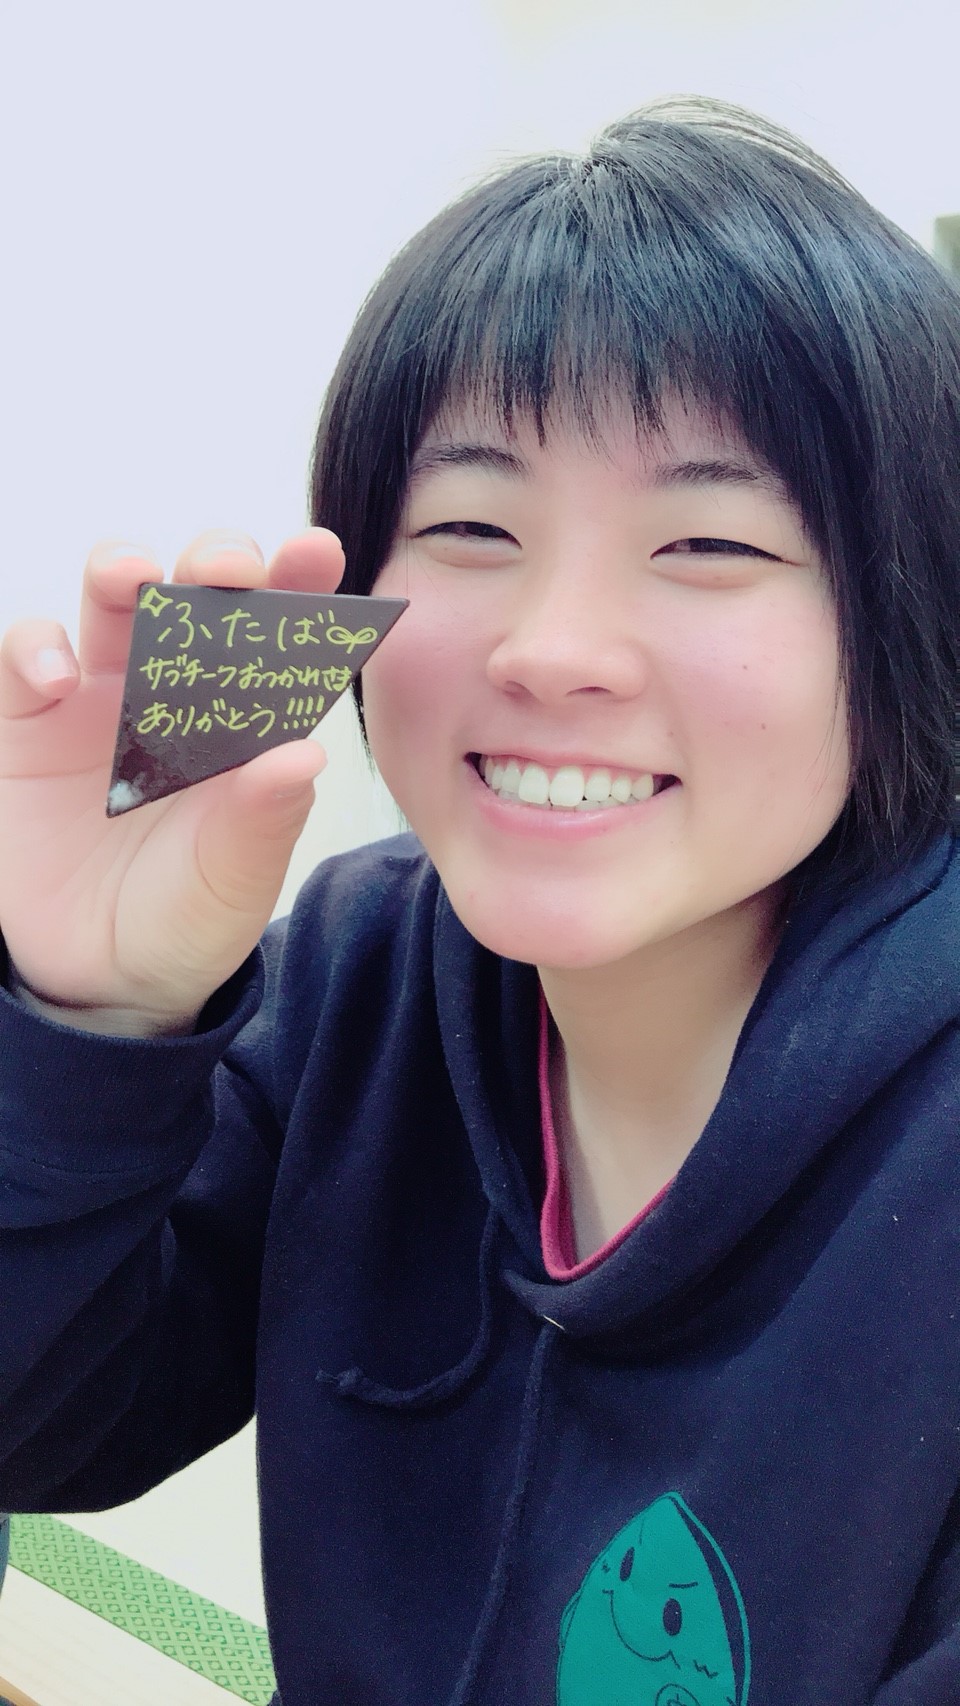 ふたば
サブチーフおつかれさま
ありがとう!!!!